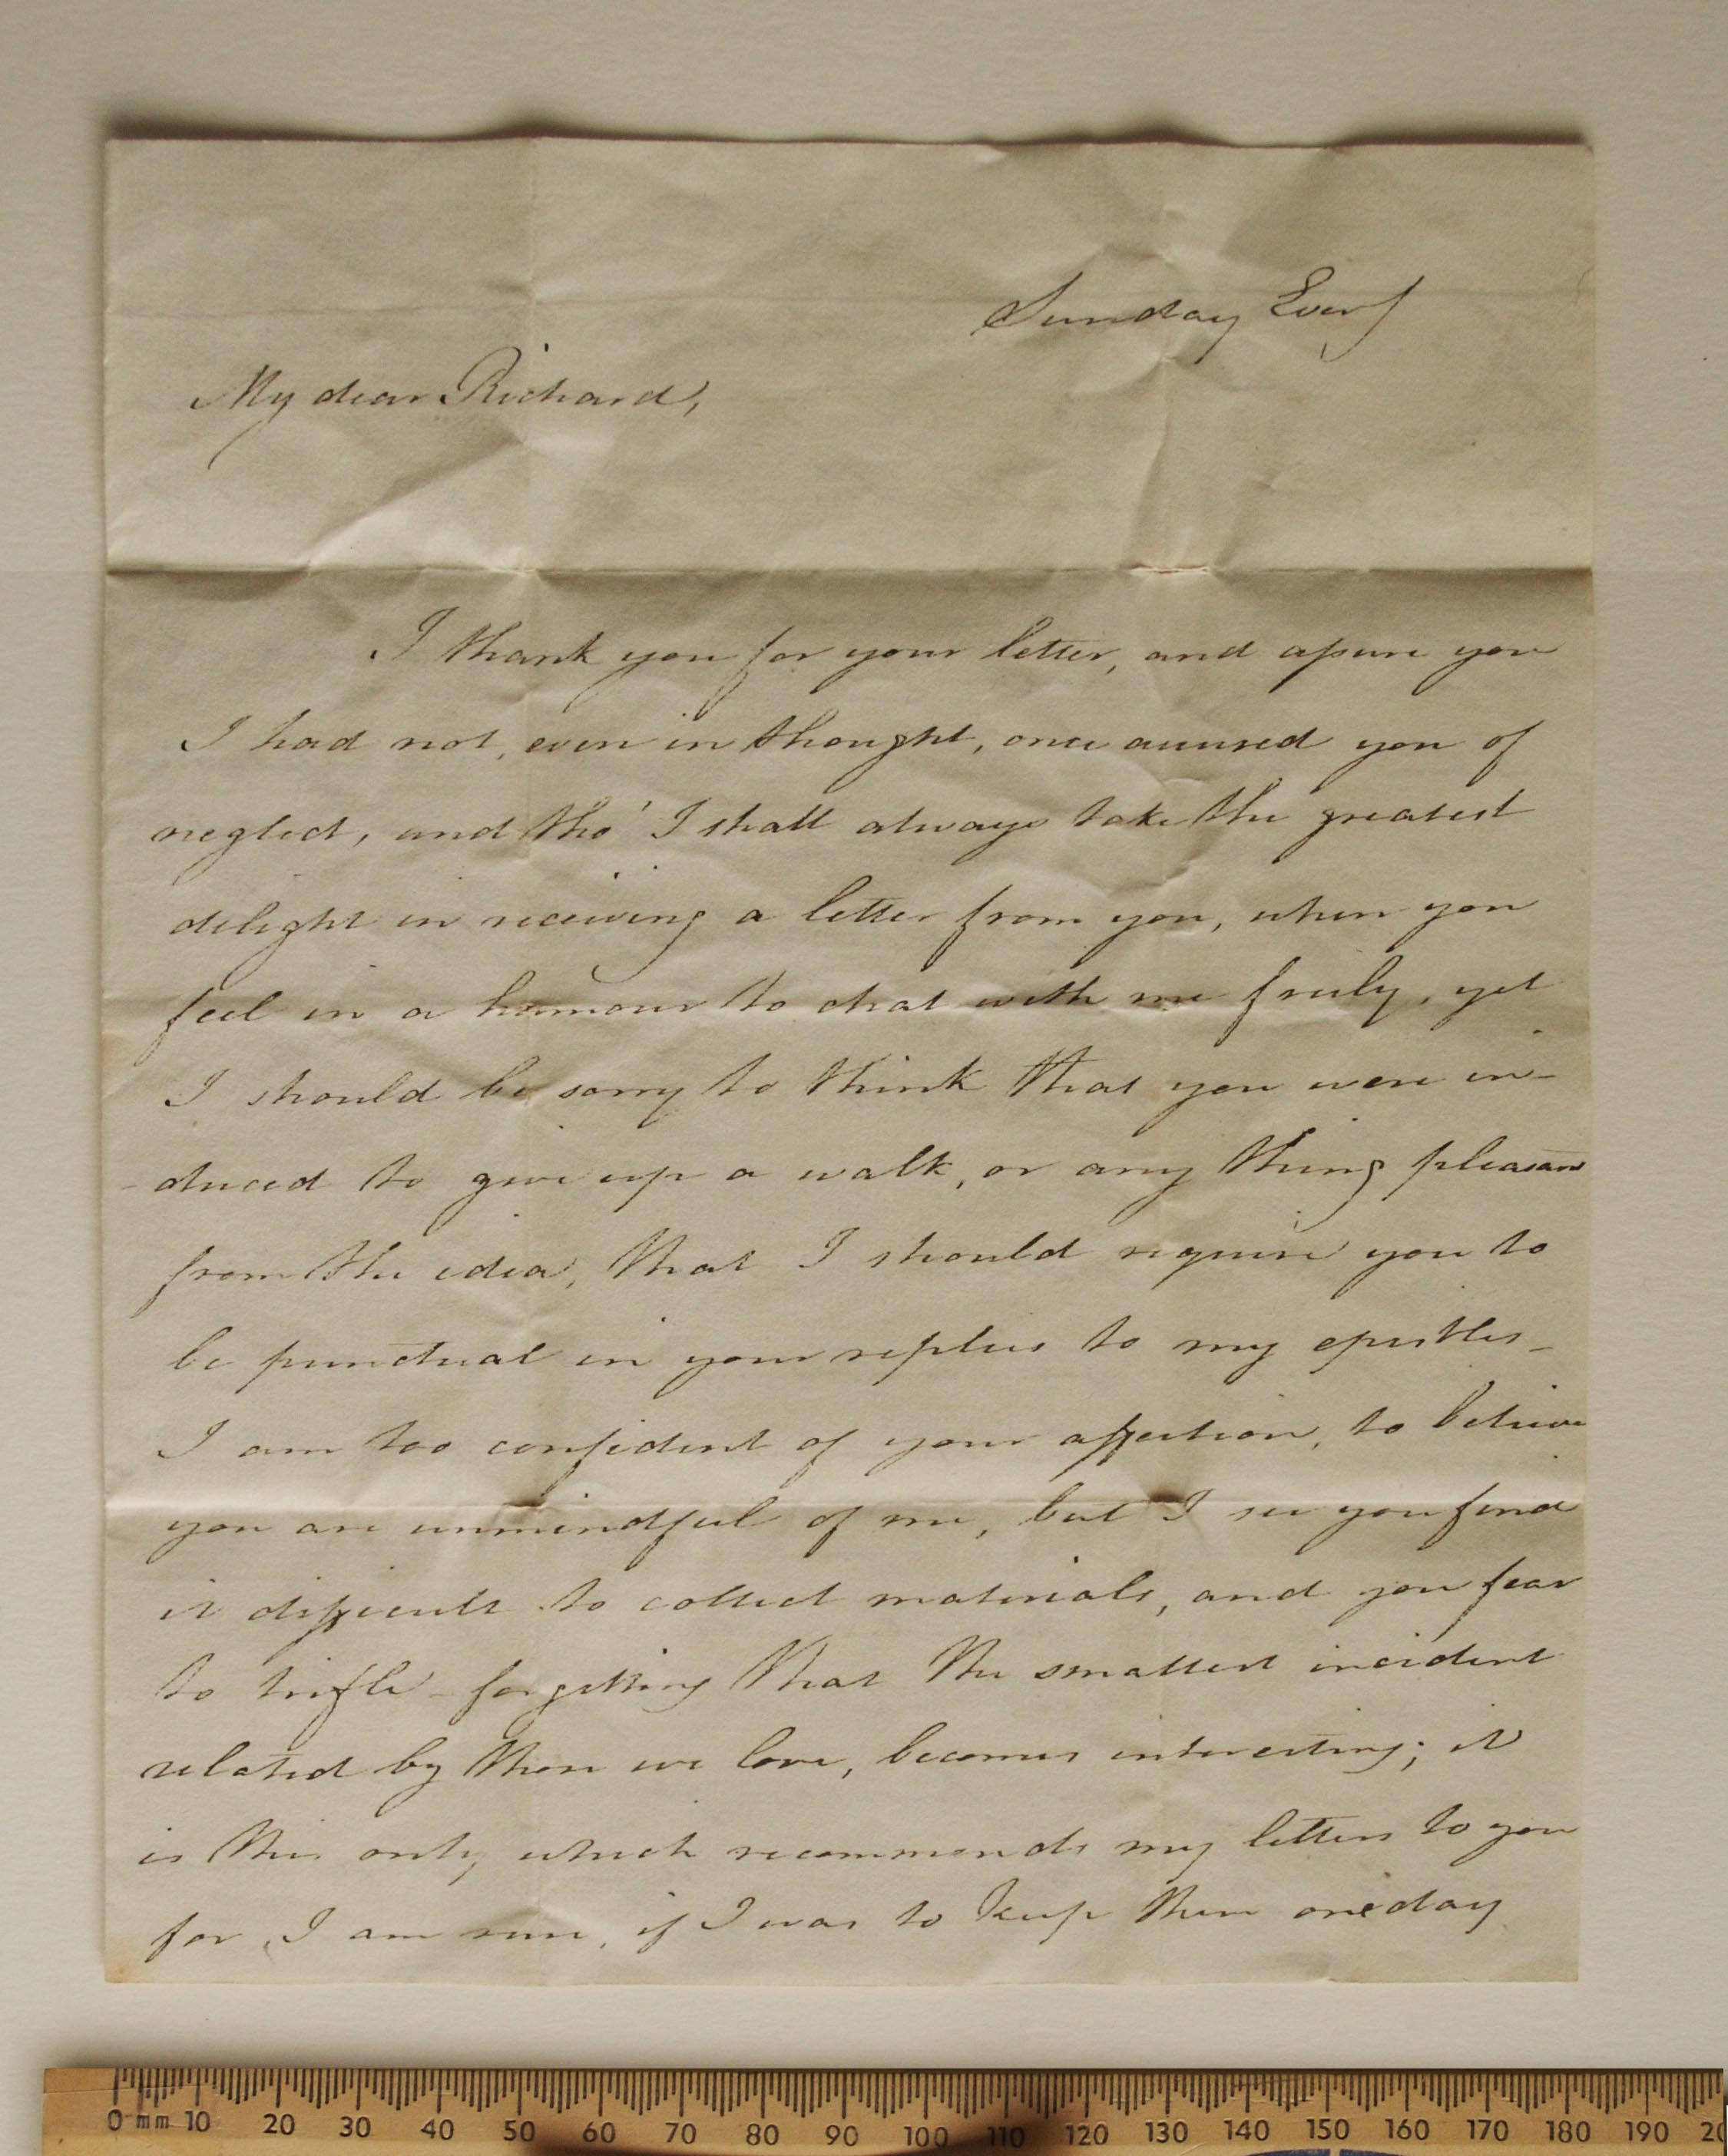 Sunday Eveng
My dear Richard,
I thank you for your letter, and assure you
I had not, even in thought, once accused you of
neglect, and tho' I shall always take the greatest
delight in receiving a letter from you, when you
feel in a humour to chat with me freely, yet
I should be sorry to think that you were in-
-duced to give up a walk, or any thing pleasant
from the idea, that I should require you to
be punctual in your replies to my epistles_
I am too confident of your affection, to believe
you are unmindful of me, but I see you find
it difficult to collect materials, and you fear
to trifle - forgetting that the smallest incident
related by those we love, becomes interesting; it
is this only, which recommends my letters to you
for, I am sure, if I was to keep them one day
0 mm 10 20 30 40 50 60 70 80 90 100 110 120 130 140 150 160 170 180 190 20